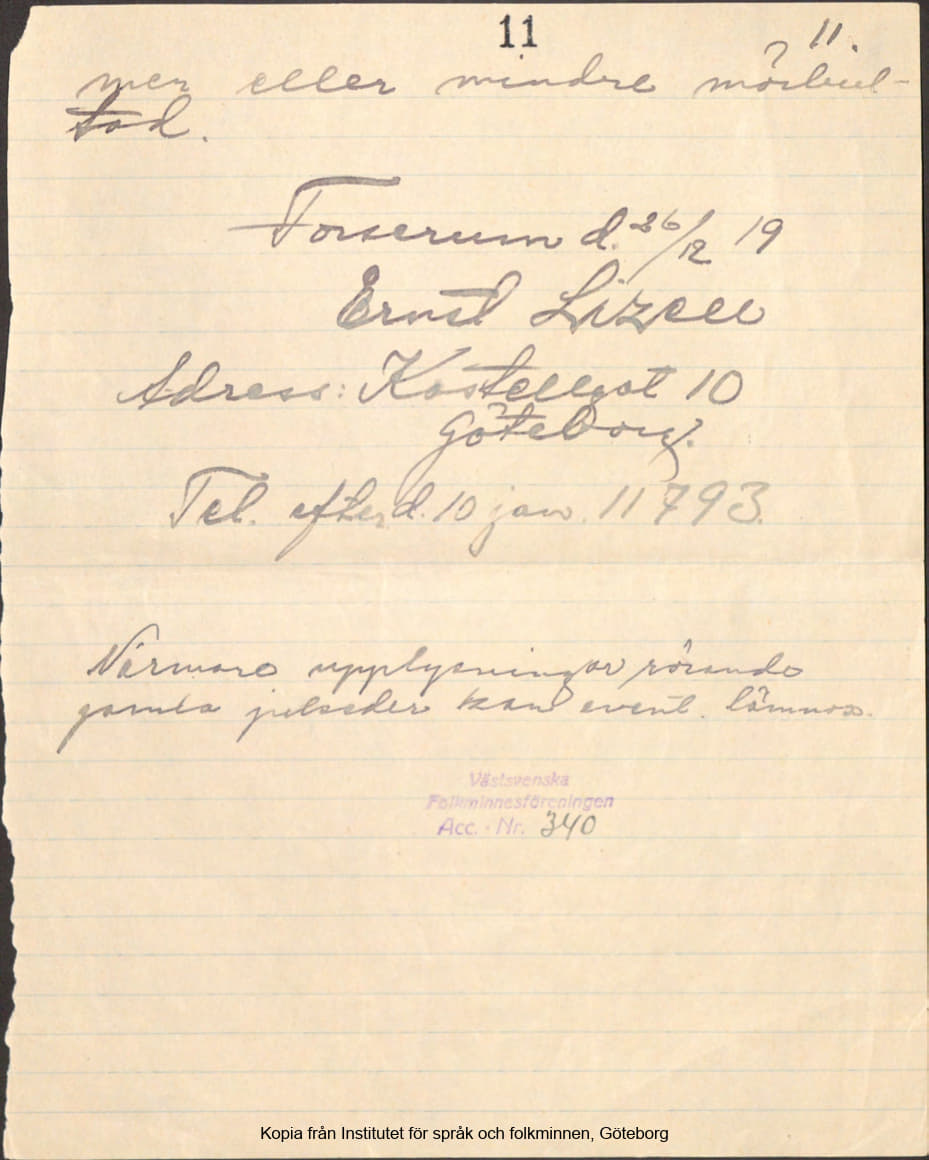 11
11.
mer eller mindre mörbul-
tad.
Forserum d. 26/12 19
Ernst Lizell
Adress: Kastellgat 10
Göteborg.
Tel. efter d. 10 jan. 11793.
Närmare upplysningar rörande
gamla julseder kan event. lämnas.
Västsvenska
Folkminnesföreningen
Acc. - Nr. 340
Kopia från Institutet för språk och folkminnen, Göteborg